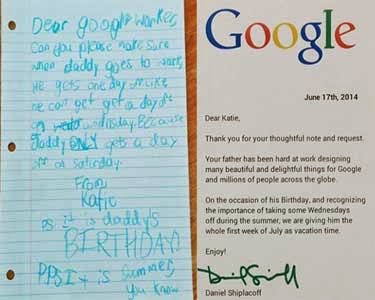 Dear google worker,
Can you please make sure
when daddy goes to work,
He gets one day off. Like
he can get get a day off
on wednesday. Because
daddy ONLY gets a day
off on saturday.
From
Katie
PS. it is daddy's
BIRTHDAY!
PPS. It is summer,
You know
Google
June 17th, 2014
Dear Katie,
Thank you for your thoughtful note and request.
Your father has been hard at work designing
many beautiful and delightful things for Google
and millions of people across the globe.
On the occasion of his Birthday, and recognizing
the importance of taking some Wednesdays
off during the summer, we are giving him the
whole first week of July as vacation time.
Enjoy!
Daniel Shiplacoff